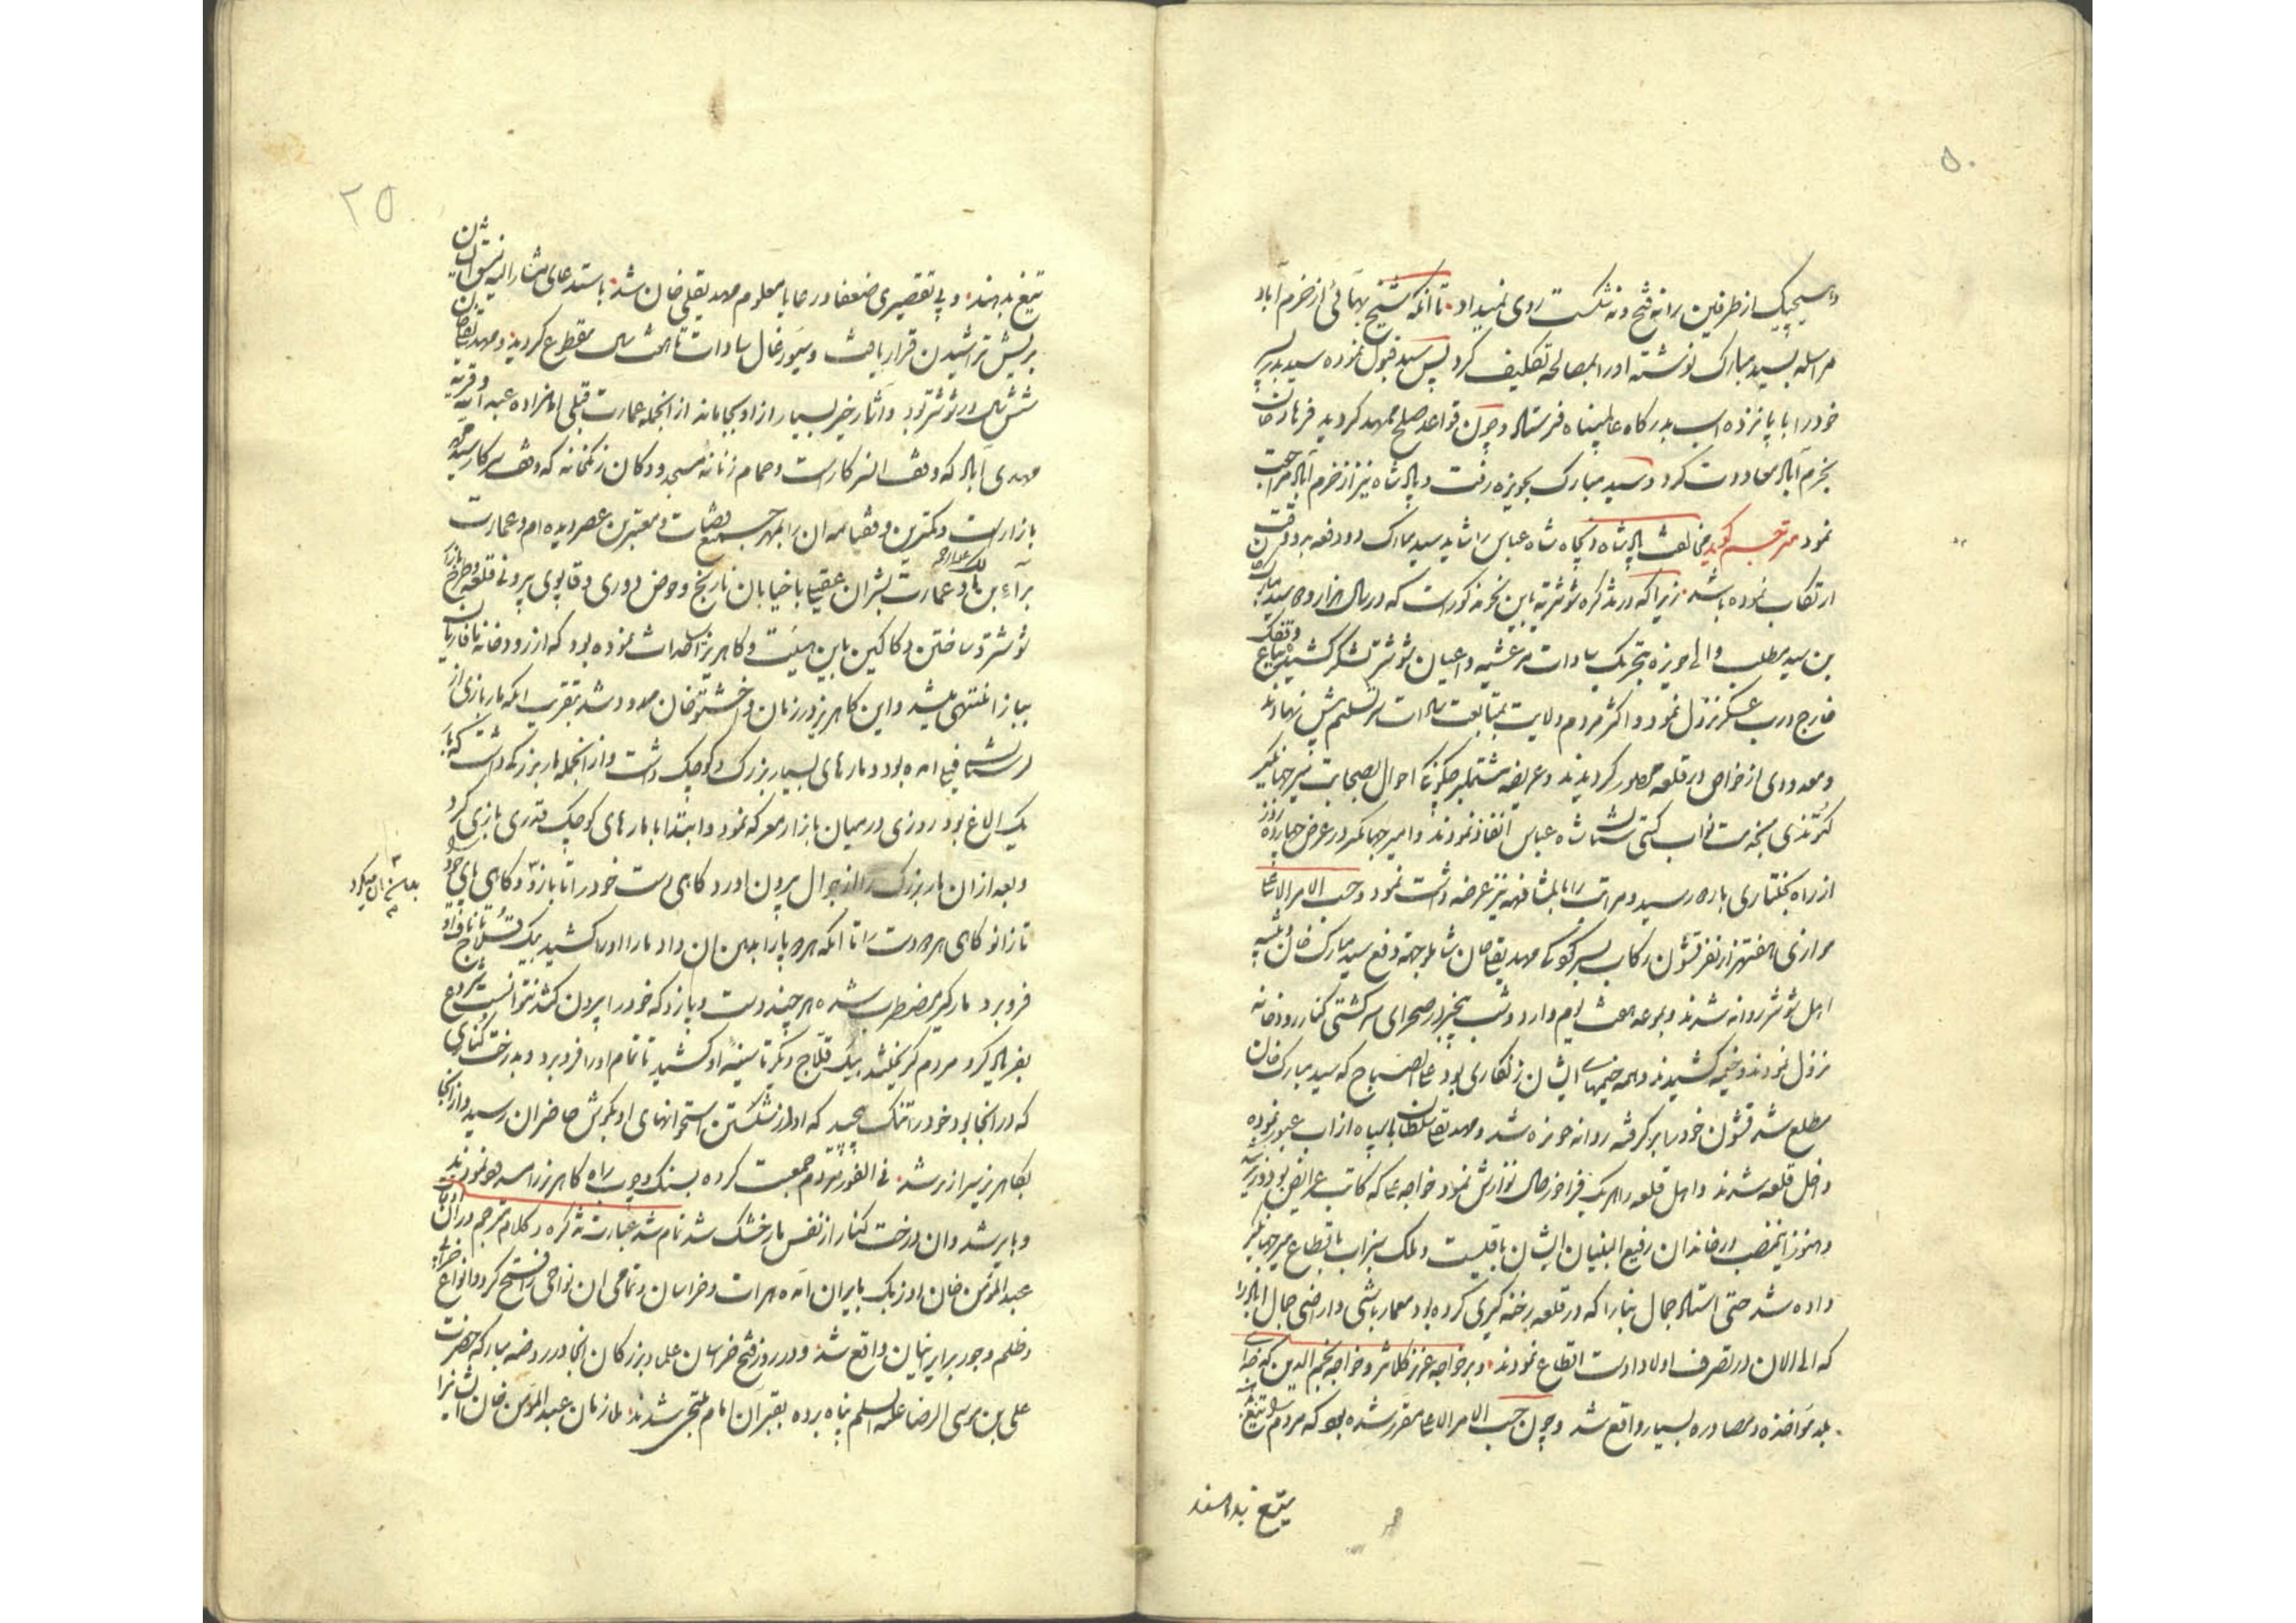 ۵۰
و هیچیک از طرفین را نه فتح و نه شکست روی نمیداد تا آنکه شیخ بهائی از خرم آباد
مراسله بسید مبارک نوشته او را بمصالحه تکلیف کرد پس سید قبول نموده سید بدر پسر
خود را با پانزده اسب بدرگاه عالمپناه فرستاد و چون قواعد صلح ممهد گردید فرهاد خان
بخرم آباد معاودت کرد و سید مبارک بحویزه رفت و پادشاه نیز از خرم آباد مراجعت
نمود مترجم گوید مخالفت پادشاه دیجاه شاه عباس را شاید سید مبارک دو دفعه بدو وقت
ارتکاب نموده باشد زیرا که در تذکره شوشتریه باین نحو مذکور است که در سال هزار و سید مبارک
بن سید مطلب والی حویزه بتحریک سادات مرعشیه و اعیان شوشتر لشکر کشیده
خارج درب عسکر نزول نمود و اکثر مردم ولایت بمتابعت سادات سر تسلیم پیش نهادند
و معدودی از خواص در قلعه محصور گردیدند و عریضه مشتمل بر چگونگی احوال بصحابت میر جهانگیر
کرتدی بخدمت نواب گیتی ستان شاه عباس انفاذ نمودند و امیر جهانگیر در عرض چهارده روز
از راه بختیاری باردو رسید و مراتب را بالمشافهه نیز عرضه داشت نمود و حسب الامر الاعلی
موازی هفتهزار نفر قشون رکاب بسرکردگی مهدیقلی خان شاملو جهة دفع سید مبارک خان و تنبیه
اهل شوشتر روانه شدند و بوعده هفت یوم وارد و شب بیخبر در صحرای سرکشتی کنار رودخانه
نزول نمودند و خیمه کشیدند و همه خیمهای ایشان زنگاری بود علی الصباح که سید مبارک خان
مطلع شد قشون خود را برگرفته روانه حویزه شد و مهدیقلی سلطان با سپاه از آب عبور نموده
داخل قلعه شدند و اهل قلعه را هر یک فراخور حال نوازش نمود خواجه علی که کاتب عرایض بود وزیر
و هنوز این منصب در خاندان رفیع البنیان ایشان باقیست و ملک بنراب باقطاع میر جهانگیر
داده شد حتی استاد جمال بنا را که در قلعه رخنه گیری کرده بود معمار باشی و اراضی جمال اباد را
که الی الان در تصرف اولاد اوست اقطاع نمودند و بر خواجه عزیز کلانتر و خواجه نجم الدین کدخدای
بلد مؤاخذه و مصادره بسیار واقع شد و چون حسب الامر الاعلی مقرر شده بود که مردم شوشتر تیغ
بتیغ بدهند
۲۵
تیغ بدهند و بی تقصیری ضعفا و رعایا معلوم مهدیقلی خان شد باستدعای مشار الیه نسق ایشان
بریش تراشیدن قرار یافت و سیورغال سادات تا هشت سال مقطوع گردید و مهدیقلی خان
شش سال در شوشتر بود و آثار خیر بسیار از او بجا مانده از آنجمله عمارت قبلی امامزاده عبدالله و قریه
مهدی آباد که وقف آن سرکار است و حمام زنانه مسجد و دکان زنکخانه که وقف سرکار سید محمد
بازار است و کمترین وقفنامه آن را بمهر جمیع قضات و معتبرین عصر دیده ام و عمارت
براء بن مالک علیه الرحمه و عمارت بشران عقیلی با خیابان نارنج و حوض دوری و قاپوی بیرونی قلعه و طرح بازار
شوشتر و ساختن دکاکین باین هیئت و کاهریز احداث نموده بود که از رودخانه بافاریان
ببازار منتهی میشد و این کاهریز در زمان واخشتو خان مسدود شد بتقریب آنکه مار بازی از
هندوستان آمده بود و مارهای بسیار بزرگ و کوچک داشت و از آنجمله مار بزرگی داشت که بار
یک الاغ بود روزی در میان بازار معرکه نمود و ابتدا با مارهای کوچک قدری بازی کرد
و بعد از آن مار بزرگ را از جوال بیرون آورد و گاهی دست خود را تا بازو و گاهی پای خود را
بدهان آن میکرد
تا زانو گاهی هر دو دست را تا آنکه هر دو پا را بدهن آن داد مار او را کشید بیک قلاج تا ناف او
فرو برد مارگیر مضطرب شده هر چند دست و پا زد که خود را بیرون کشد نتوانست شروع
بفریاد کرد مردم گریختند بیک قلاج دیگر تا سینه او کشید تا تمام او را فرو برد و بدرخت کناری
که در آنجا بود خود را تنگ پیچید که آواز شکستن استخوانهای او بگوش حاضران رسید و از آنجا
بکاهریز سرازیر شد فی الفور مردم جمعیت کرده بسنگ و چوب راه کاهریز را مسدود نمودند
و بایر شد و آن درخت کنار از نفس مار خشک شد تمام شد عبارت تذکره و کلام مترجم در آن اوقات
عبدالمؤمن خان اوزبک بایران آمده هرات و خراسان و تمامی آن نواحی را فتح کرد و انواع خرابی
و ظلم و جور بر ایرانیان واقع شد و در روز فتح خراسان علما و بزرگان آنجا در روضه مبارکه حضرت
علی بن موسی الرضا علیه السلم پناه برده بقبر آن امام ملتجی شدند ملازمان عبدالمؤمن خان ایشانرا